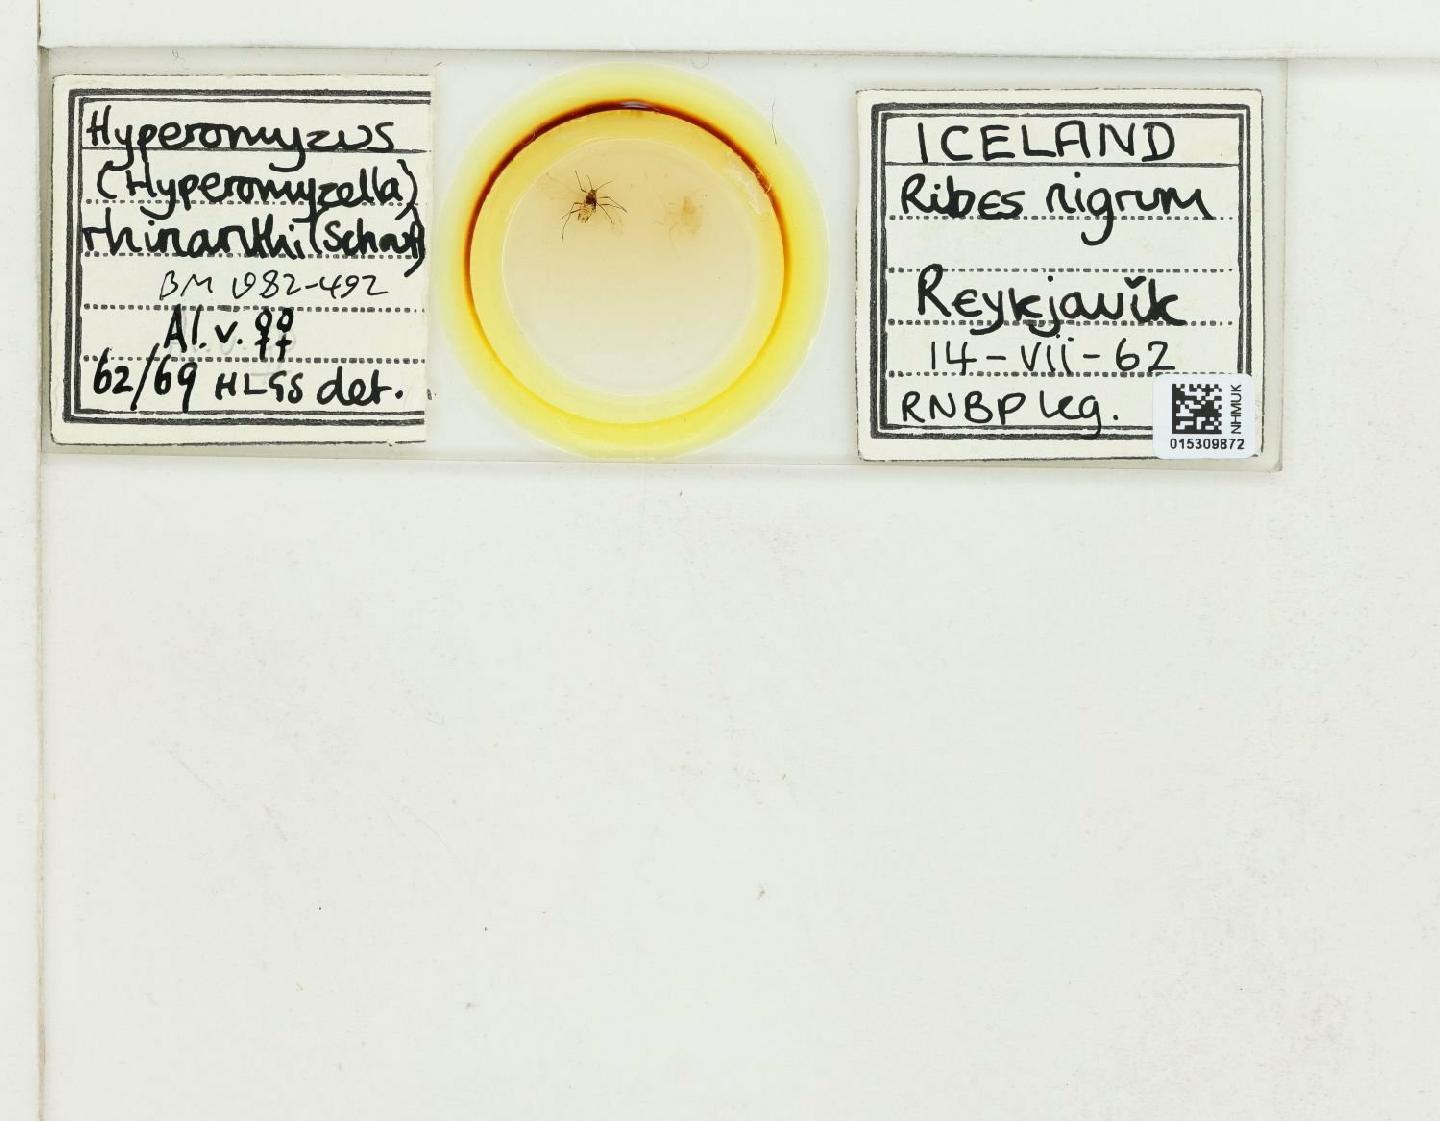 Hyperomyzus
(Hyperomyzella)
rhinanthi (Schout)
BM 1982-492
Al. v. ♀♀
62/69 HLGS det.
ICELAND
Ribes nigrum
Reykjavik
14-Vii-62
RNBP leg.
NHMUK
015309872